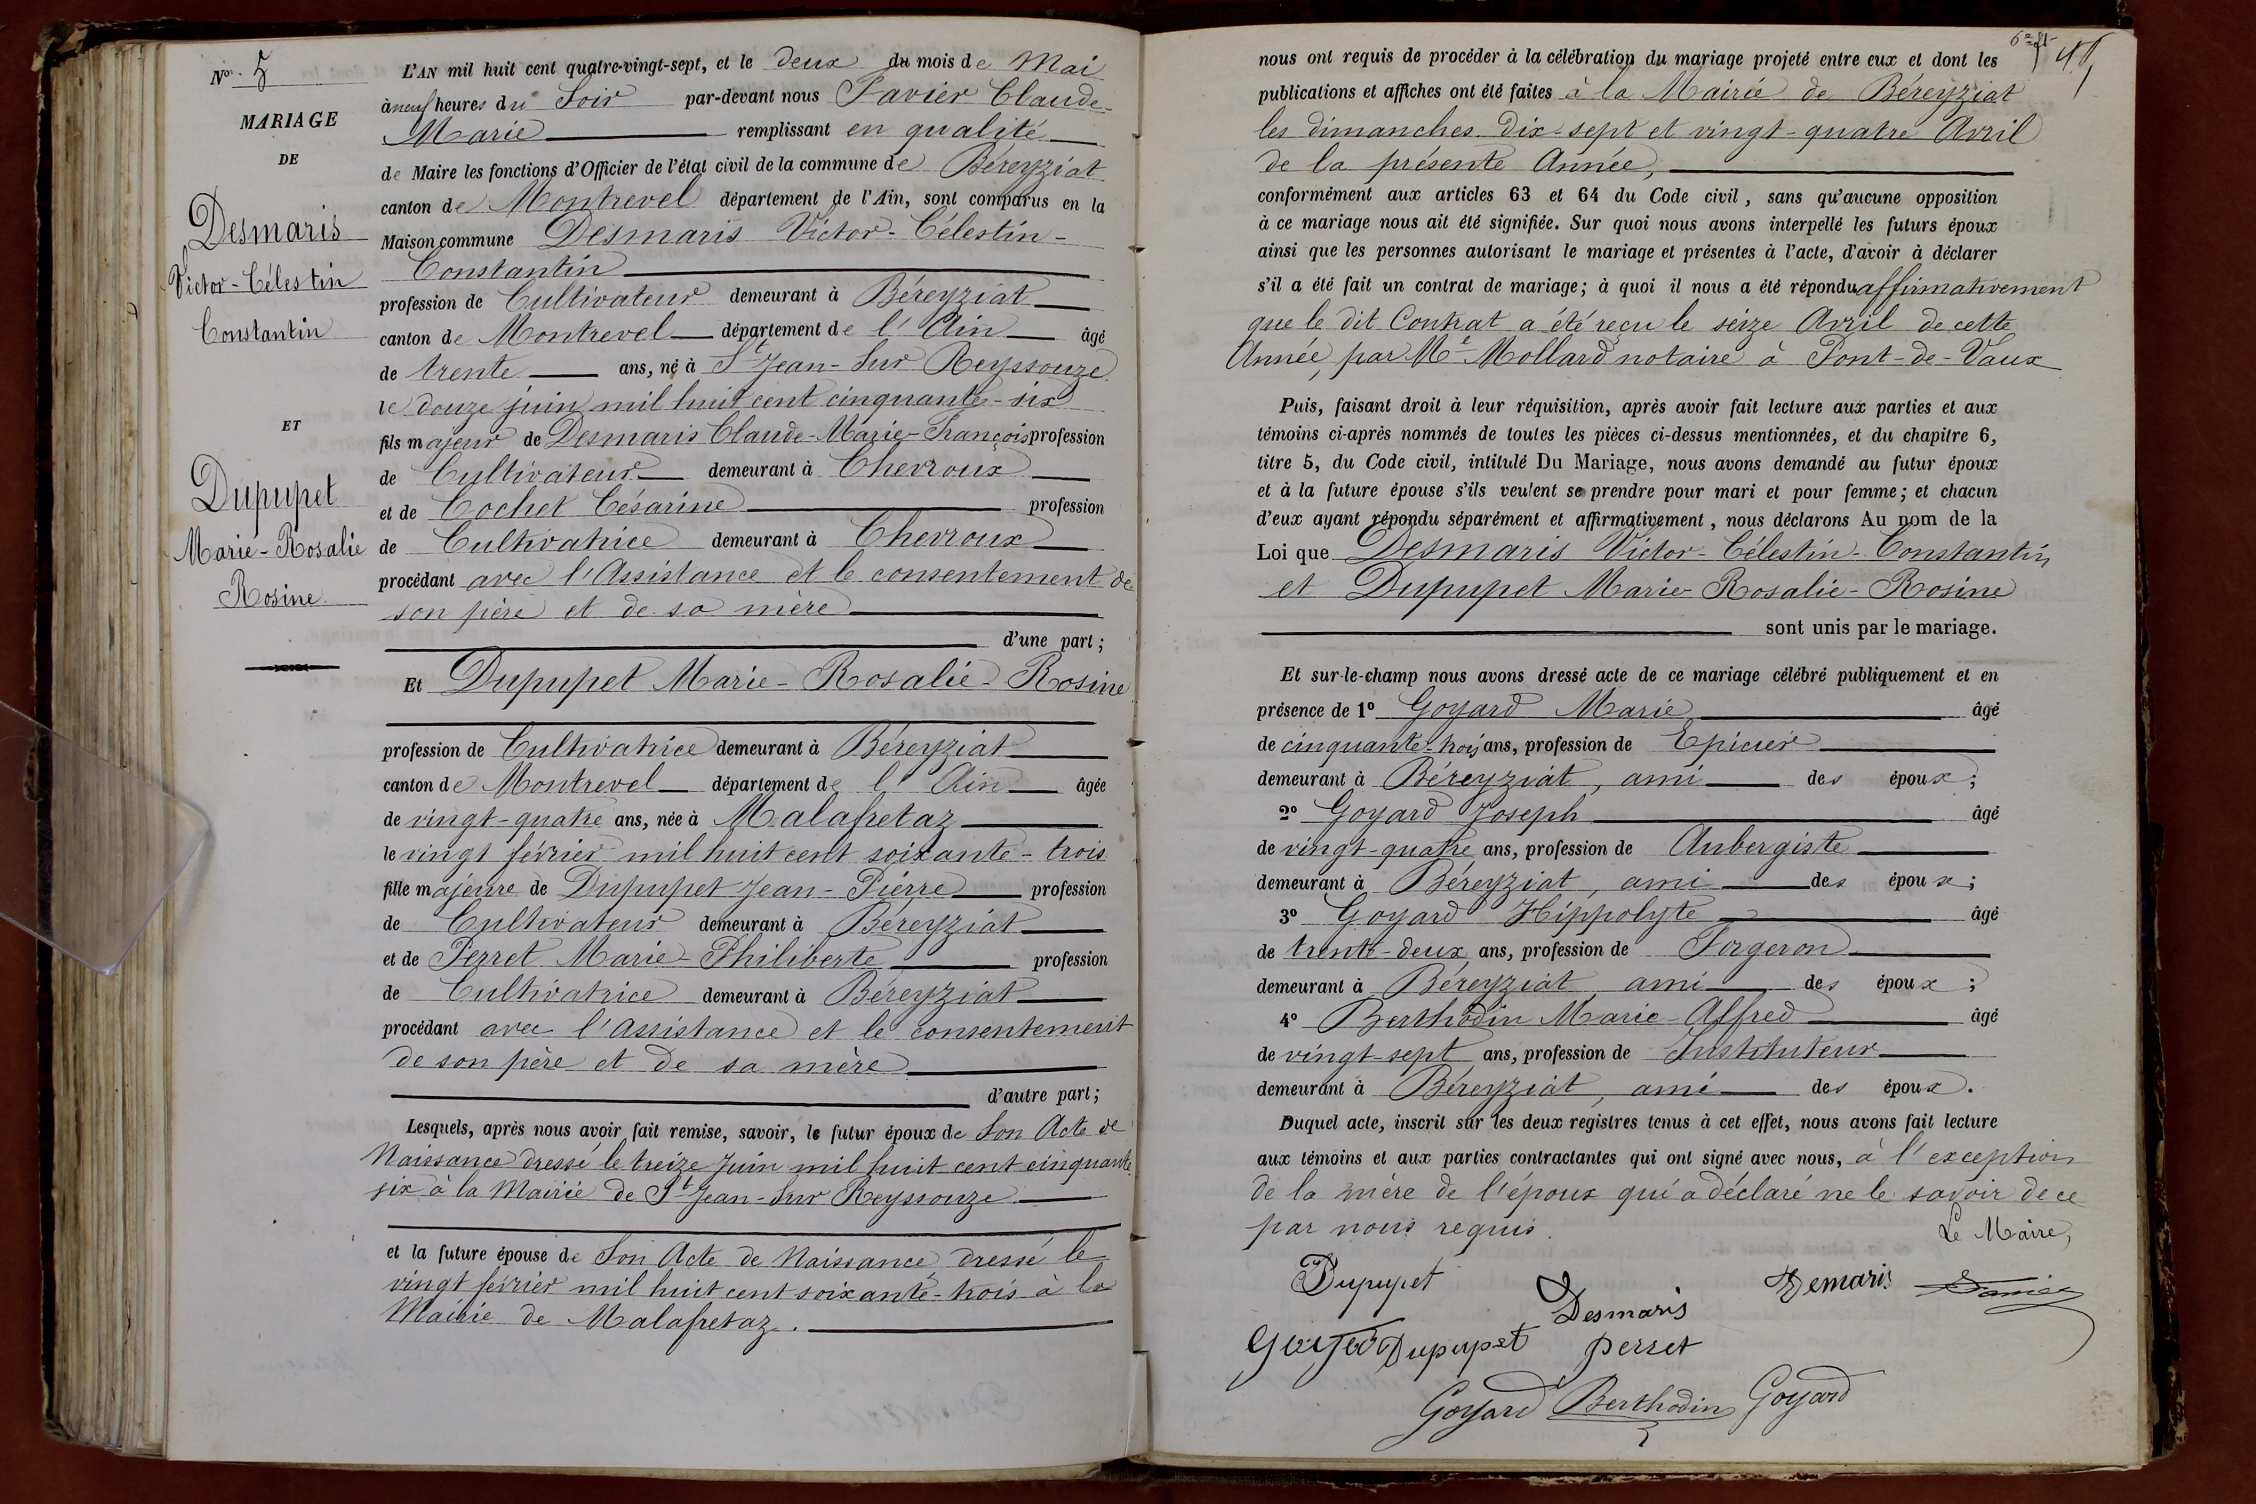 N° 5
MARIAGE
DE
Desmaris
Victor-Célestin
Constantin
ET
Dupupet
Marie-Rosalie
Rosine
L'AN mil huit cent quatre-vingt-sept, et le deux du mois de Mai
à neuf heures du Soir par-devant nous Favier Claude-
Marie remplissant en qualité
de Maire les fonctions d'Officier de l'état civil de la commune de Béreyziat
canton de Montrevel département de l'Ain, sont comparus en la
Maison commune Desmaris Victor-Célestin-
Constantin
profession de Cultivateur demeurant à Béreyziat
canton de Montrevel département de l'Ain âgé
de trente ans, né à St Jean-Sur Reyssouze
le douze juin mil huit cent cinquante-six
fils majeur de Desmaris Claude-Marie-François profession
de Cultivateur demeurant à Chevroux
et de Cochet Césarine profession
de Cultivatrice demeurant à Chevroux
procédant avec l'Assistance et le consentement de
son père et de sa mère
d'une part;
Et Dupupet Marie-Rosalie-Rosine
profession de Cultivatrice demeurant à Béreyziat
canton de Montrevel département de l'Ain âgée
de vingt-quatre ans, née à Malafretaz
le vingt février mil huit cent soixante-trois
fille majeure de Dupupet Jean-Pierre profession
de Cultivateur demeurant à Béreyziat
et de Perret Marie-Philiberte profession
de Cultivatrice demeurant à Béreyziat
procédant avec l'Assistance et le consentement
de son père et de sa mère
d'autre part;
Lesquels, après nous avoir fait remise, savoir, le futur époux de Son Acte de
Naissance dressé le treize Juin mil huit cent cinquante
six à la Mairie de St Jean-Sur Reyssouze
et la future épouse de Son Acte de Naissance dressé le
vingt février mil huit cent soixante-trois à la
Mairie de Malafretaz.
nous ont requis de procéder à la célébration du mariage projeté entre eux et dont les
publications et affiches ont été faites à la Mairie de Béreyziat
les dimanches dix-sept et vingt-quatre Avril
de la présente Année,
conformément aux articles 63 et 64 du Code civil, sans qu'aucune opposition
à ce mariage nous ait été signifiée. Sur quoi nous avons interpellé les futurs époux
ainsi que les personnes autorisant le mariage et présentes à l'acte, d'avoir à déclarer
s'il a été fait un contrat de mariage; à quoi il nous a été répondu affirmativement
que le dit Contrat a été reçu le seize Avril de cette
Année, par Me Mollard notaire à Pont-de-Vaux
Puis, faisant droit à leur réquisition, après avoir fait lecture aux parties et aux
témoins ci-après nommés de toutes les pièces ci-dessus mentionnées, et du chapitre 6,
titre 5, du Code civil, intitulé Du Mariage, nous avons demandé au futur époux
et à la future épouse s'ils veulent se prendre pour mari et pour femme; et chacun
d'eux ayant répondu séparément et affirmativement, nous déclarons Au nom de la
Loi que Desmaris Victor-Célestin-Constantin
et Dupupet Marie Rosalie-Rosine
sont unis par le mariage.
Et sur-le-champ nous avons dressé acte de ce mariage célébré publiquement et en
présence de 1° Goyard Marie âgé
de cinquante-trois ans, profession de Epicier
demeurant à Béreyziat, ami des époux;
2° Goyard Joseph âgé
de vingt-quatre ans, profession de Aubergiste
demeurant à Béreyziat, ami des époux;
3° Goyard Hippolyte âgé
de trente-deux ans, profession de Forgeron
demeurant à Béreyziat ami des époux;
4° Berthodin Marie-Alfred âgé
de vingt-sept ans, profession de Instituteur
demeurant à Béreyziat, ami des époux.
Duquel acte, inscrit sur les deux registres tenus à cet effet, nous avons fait lecture
aux témoins et aux parties contractantes qui ont signé avec nous, à l'exception
de la mère de l'époux qui a déclaré ne le savoir de ce
par nous requis.
Le Maire,
Dupupet Desmaris Demaris Favier
Goyard Dupupet Perret
Goyard Berthodin Goyard